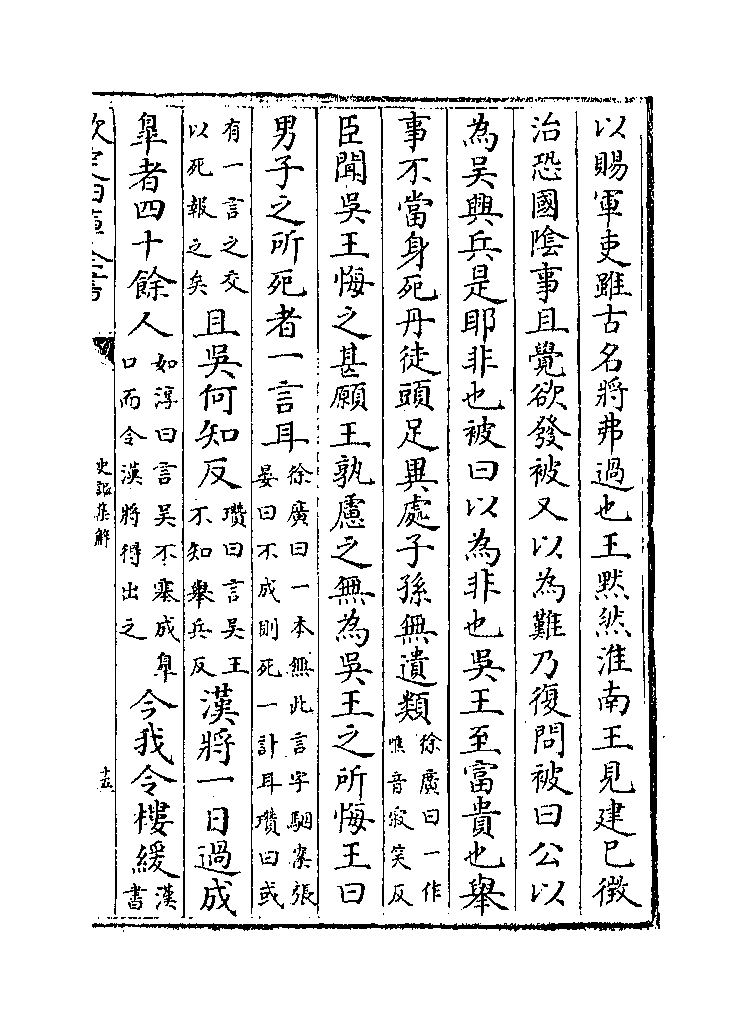 以賜軍吏雖古名將弗過也王默然淮南王見建已徵
治恐國隂事且覺欲發被又以為難乃復問被曰公以
為吳興兵是耶非也被曰以為非也吳王至富貴也舉
事不當身死丹徒頭足異處子孫無遺類徐廣曰一作噍音寂笑反
臣聞吳王悔之甚願王孰慮之無為吳王之所悔王曰
男子之所死者一言耳徐廣曰一本無此言字駰案張晏曰不成則死一計耳瓚曰或
有一言之交以死報之矣且吳何知反瓚曰言吳王不知舉兵反漢將一日過成
臯者四十餘人如淳曰言吳不塞成臯口而令漢將得出之今我令樓緩漢書
欽定四庫全書
史記集解
十五